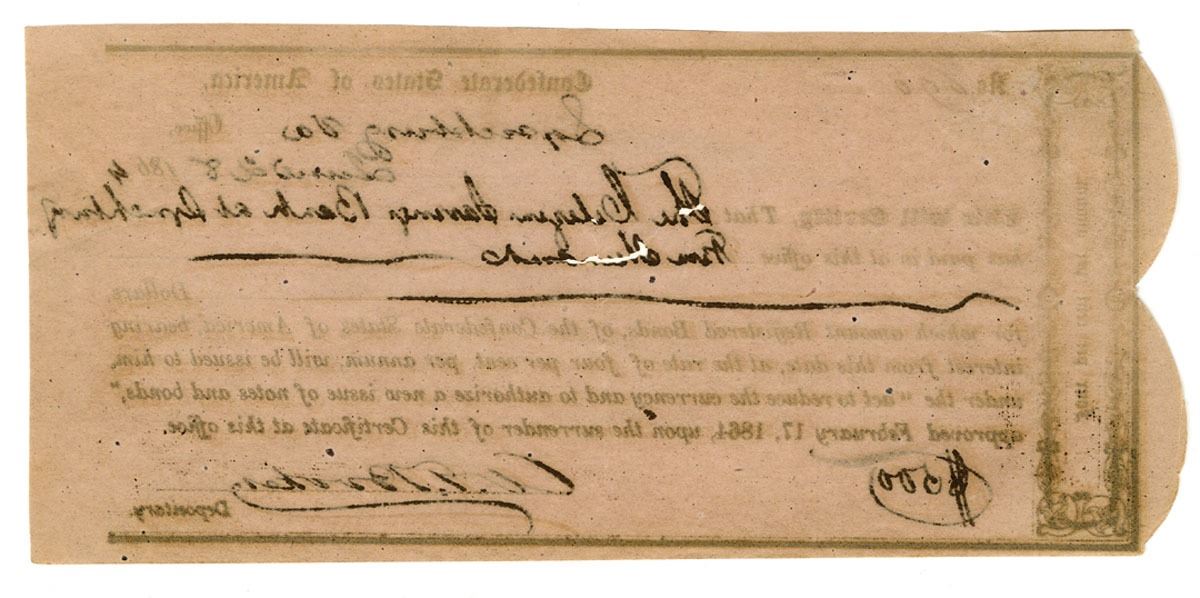 No. 690
Confederate States of America,
Lynchburg Va Office,
March 28 1864
This will Certify, That The Citizens Savings Bank at Lynchburg
has paid in at this office Five Hundred
Dollars,
for which amount Registered Bonds, of the Confederate States of America, bearing
interest from this date, at the rate of four per cent. per annum, will be issued to him,
under the "act to reduce the currency and to authorize a new issue of notes and bonds,"
approved February 17, 1864, upon the surrender of this Certificate at this office.
$500
Depositary.
Four per cent